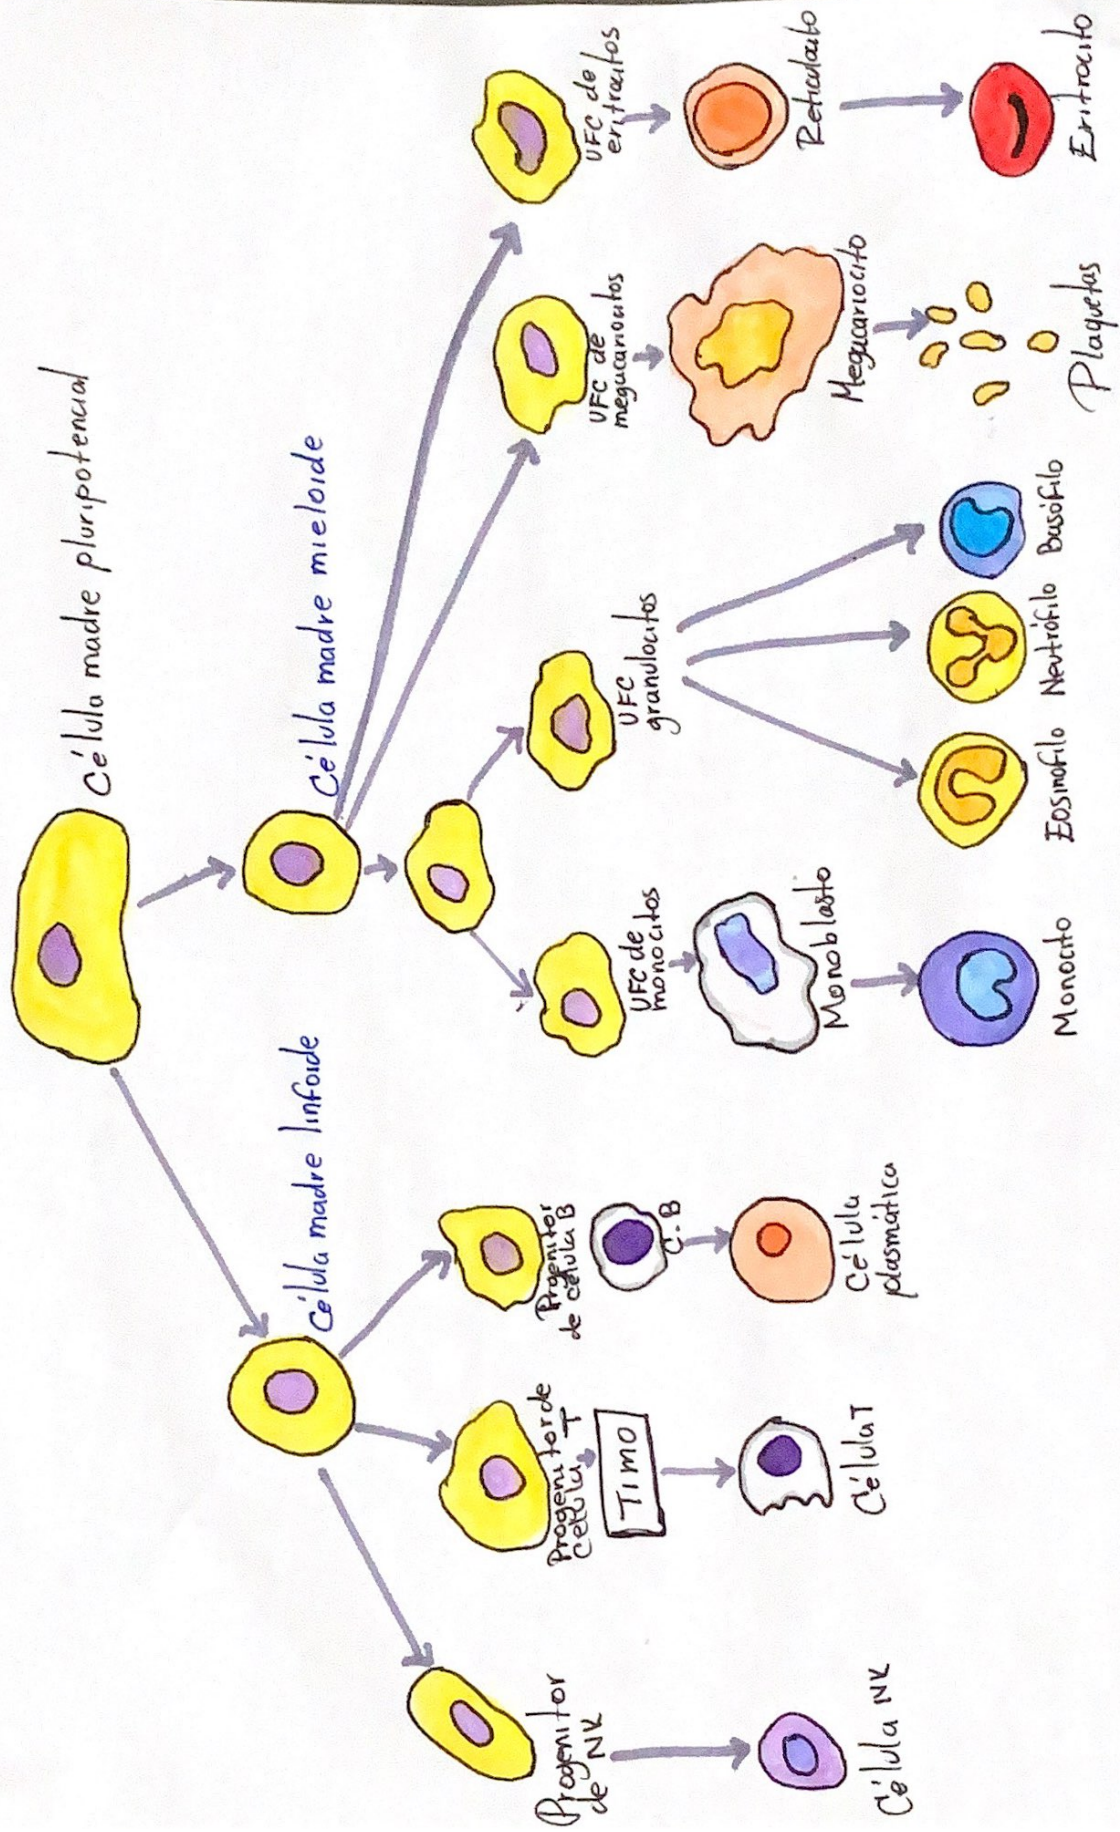 Célula madre pluripotencial
Célula madre linfoide
Célula madre mieloide
Progenitor
de NK
Célula NK
Progenitor de
célula T
TIMO
Célula T
Progenitor
de célula B
C. B
Célula
plasmática
UFC de
monocitos
Monoblasto
Monocito
UFC
granulocitos
Eosinofilo
Neutrófilo
Basófilo
UFC de
megacariocitos
Megacariocito
Plaquetas
UFC de
eritrocitos
Reticulocito
Eritrocito